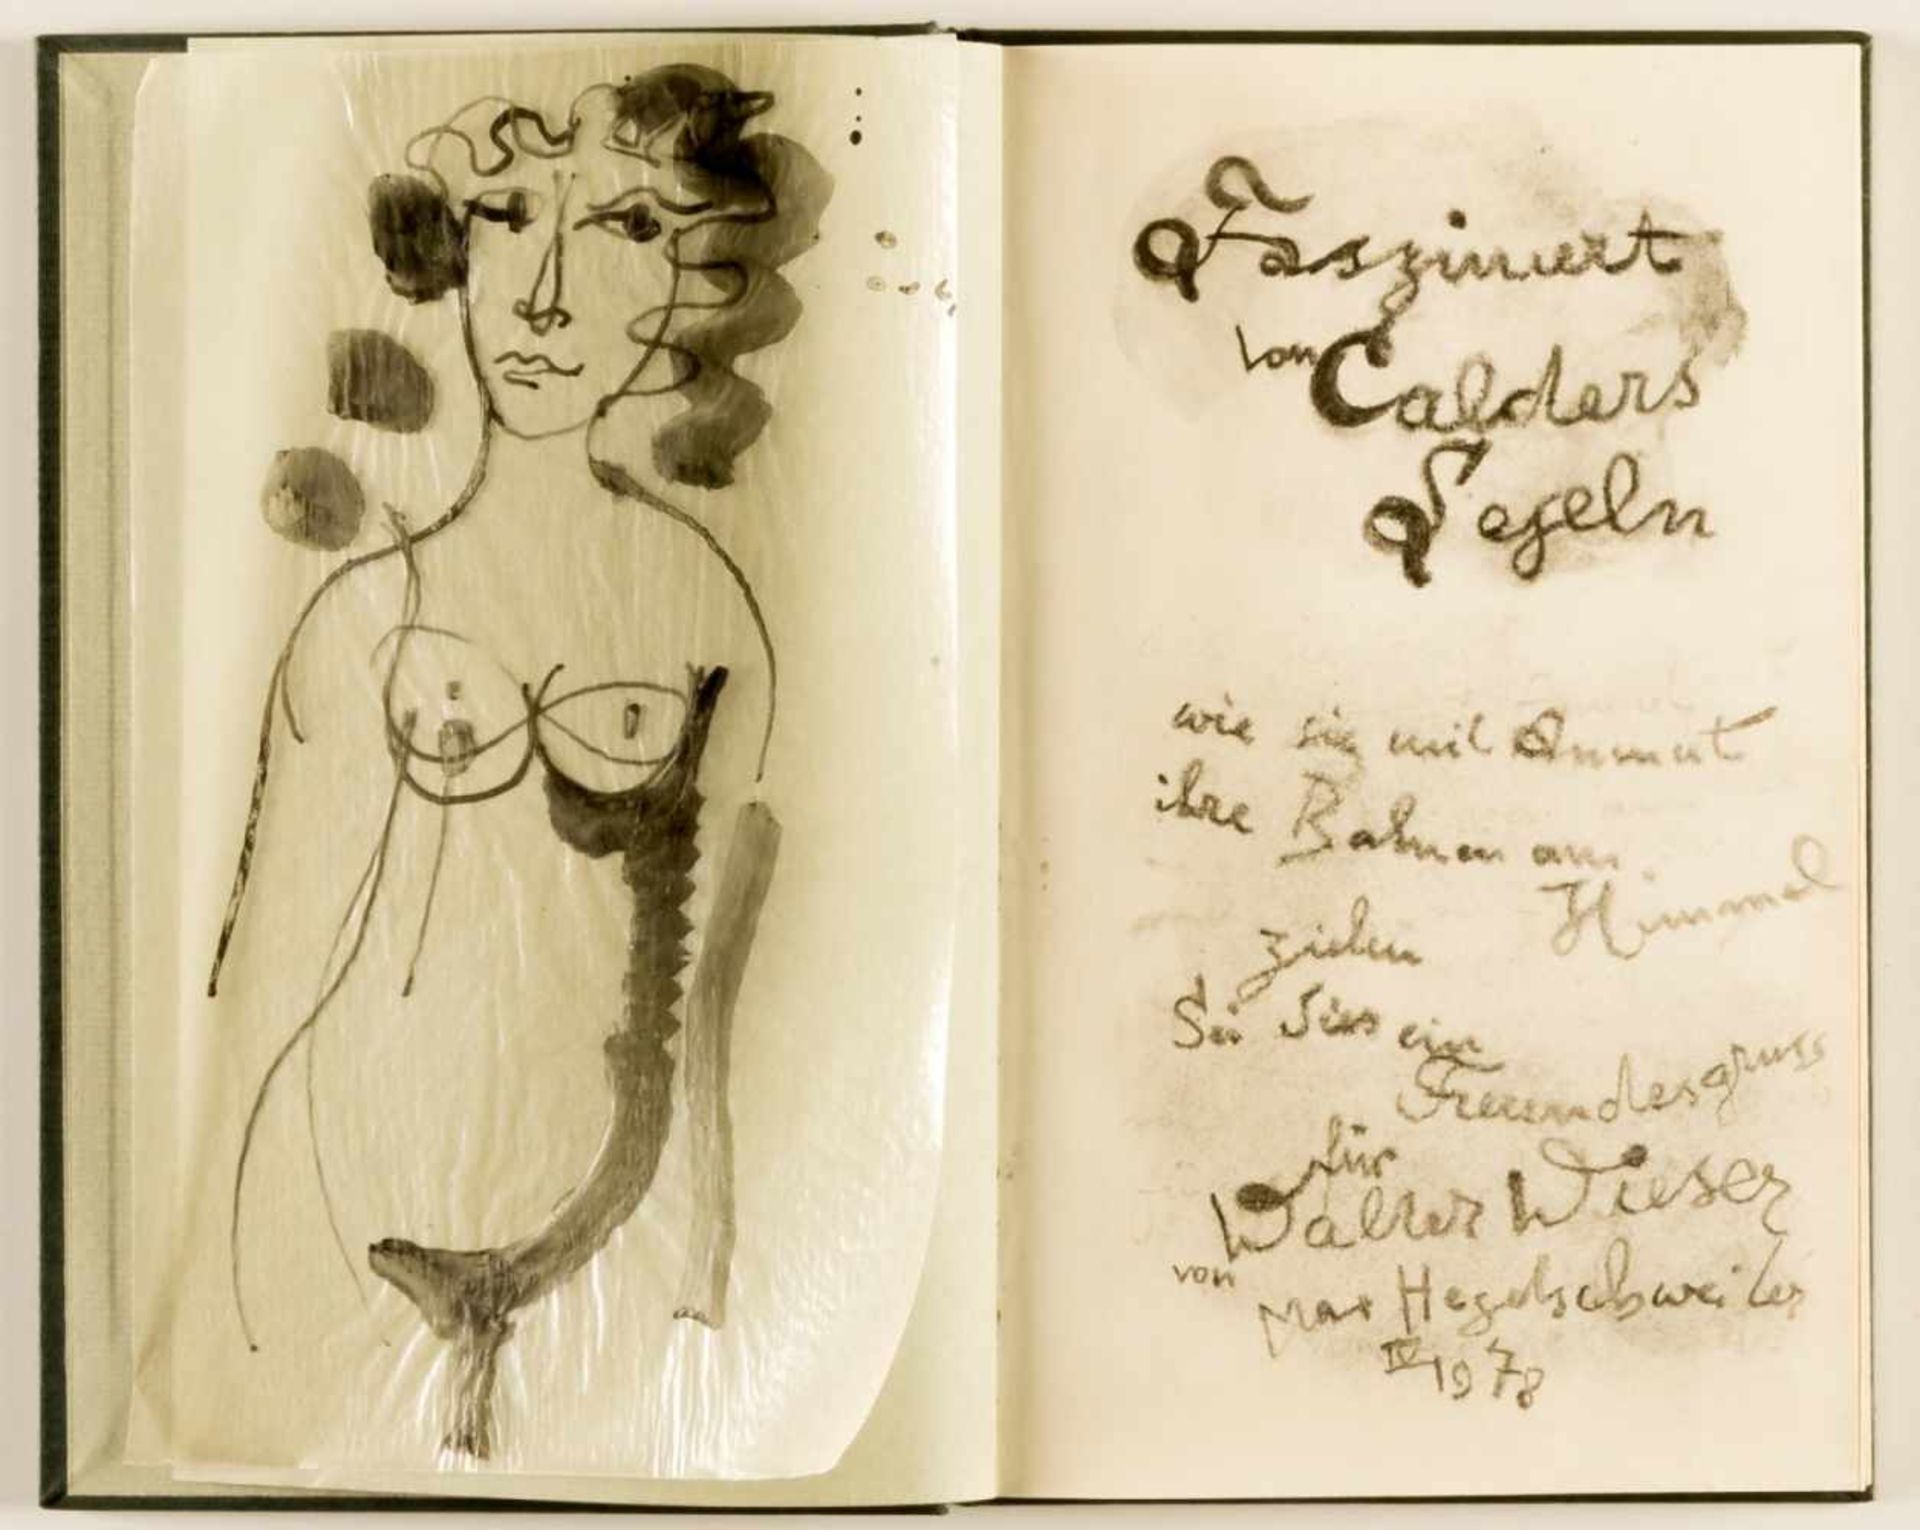 Fasziniert
von Calders
Segeln
wie sie mit Anmut
ihre Bahnen am
Himmel
ziehen
Sei dies ein
Freundesgruss
für
Walter Wieser
von
Max Hegetschweiler
IV 1978